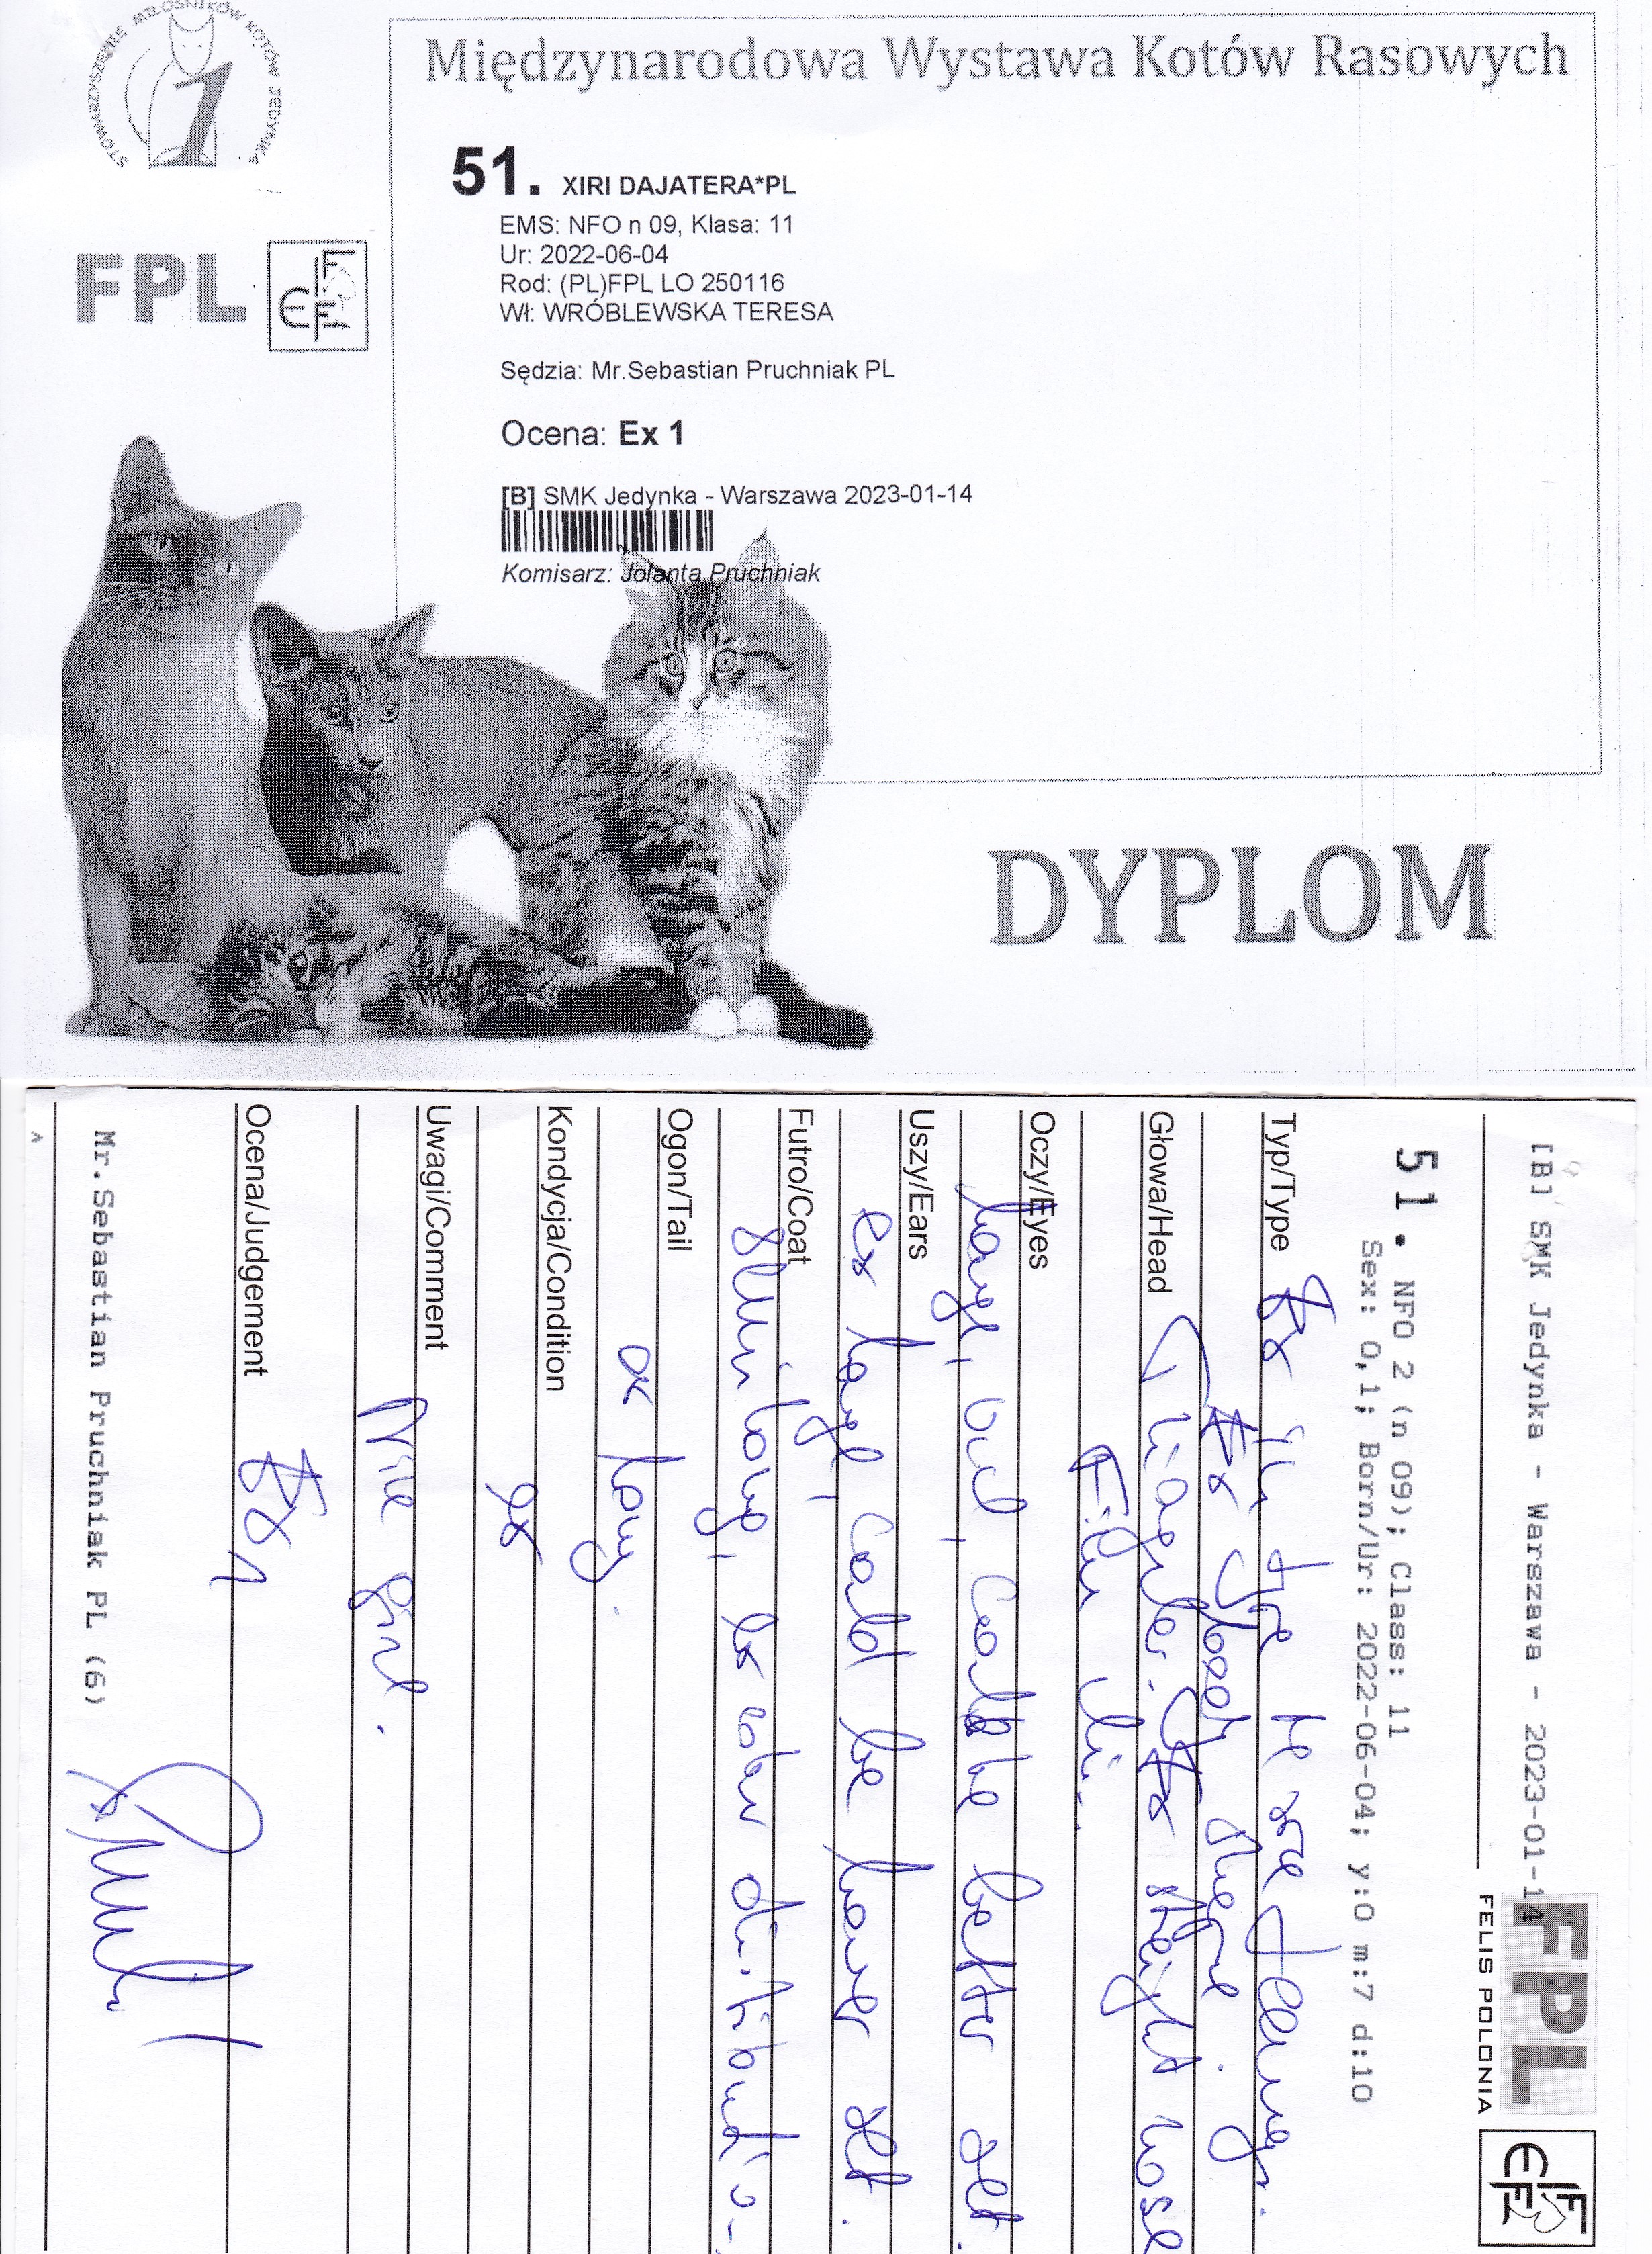 STOWARZYSZENIE MIŁOŚNIKÓW KOTÓW JEDYNKA
1
Międzynarodowa Wystawa Kotów Rasowych
51. XIRI DAJATERA*PL
EMS: NFO n 09, Klasa: 11
Ur: 2022-06-04
Rod: (PL)FPL LO 250116
Wł: WRÓBLEWSKA TERESA
FPL FIFE
Sędzia: Mr.Sebastian Pruchniak PL
Ocena: Ex 1
[B] SMK Jedynka - Warszawa 2023-01-14
Komisarz: Jolanta Pruchniak
DYPLOM
[B] SMK Jedynka - Warszawa - 2023-01-14
FPL FIFE
FELIS POLONIA
51. NFO 2 (n 09); Class: 11
Sex: 0,1; Born/Ur: 2022-06-04; y:0 m:7 d:10
Typ/Type Ex
Ex
Głowa/Head triangular. Ex straight nose
Oczy/Eyes
large, be better set.
Uszy/Ears
ex large, could be lower set.
Futro/Coat
long, ex color
Ogon/Tail
ok long.
Kondycja/Condition
ex
Uwagi/Comment
Nice girl.
Ocena/Judgement Ex 1
Mr.Sebastian Pruchniak PL (6)